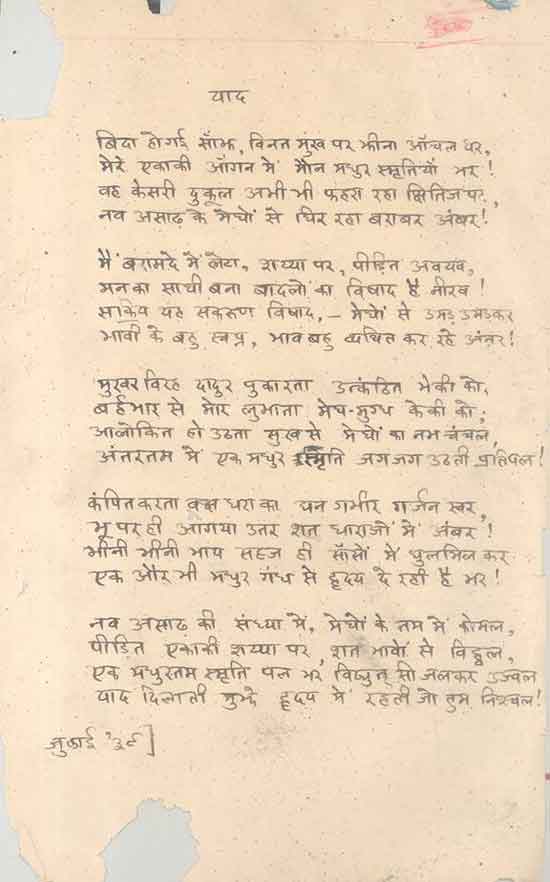 याद
बिदा होगई साँझ, विनत मुख पर झीना आँचल धर,
मेरे एकाकी आँगन में मौन मधुर स्मृतियाँ भर!
वह केसरी दुकूल अभी भी फहरा रहा क्षितिज पर,
नव असाढ़ के मेघों से घिर रहा बराबर अंबर!
मैं बरामदे में लेटा, शय्या पर, पीड़ित अवयव,
मन का साथी बना बादलों का विषाद है नीरव!
सक्रिय यह सकरुण विषाद, – मेघों से उमड़ उमड़कर
भावी के बहु स्वप्न, भाव बहु व्यथित कर रहे अंतर!
मुखर विरह दादुर पुकारता उत्कंठित भेकी को,
बर्हभार से मोर लुभाता मेघ-मुग्ध केकी को;
आलोकित हो उठता सुख से मेघों का नभ चंचल,
अंतरतम में एक मधुर स्मृति जग जग उठती प्रतिपल!
कंपित करता वक्ष धरा का घन गभीर गर्जन स्वर,
भू पर ही आगया उतर शत धाराओं में अंबर!
भीनी भीनी भाप सहज ही साँसों में घुलमिल कर
एक और भी मधुर गंध से हृदय दे रही है भर!
नव असाढ़ की संध्या में, मेघों के तम में कोमल,
पीड़ित एकाकी शय्या पर, शत भावों से विह्वल,
एक मधुरतम स्मृति पल भर विद्युत् सी जलकर उज्वल
याद दिलाती मुझे हृदय में रहती जो तुम निश्चल!
जुलाई '३९]